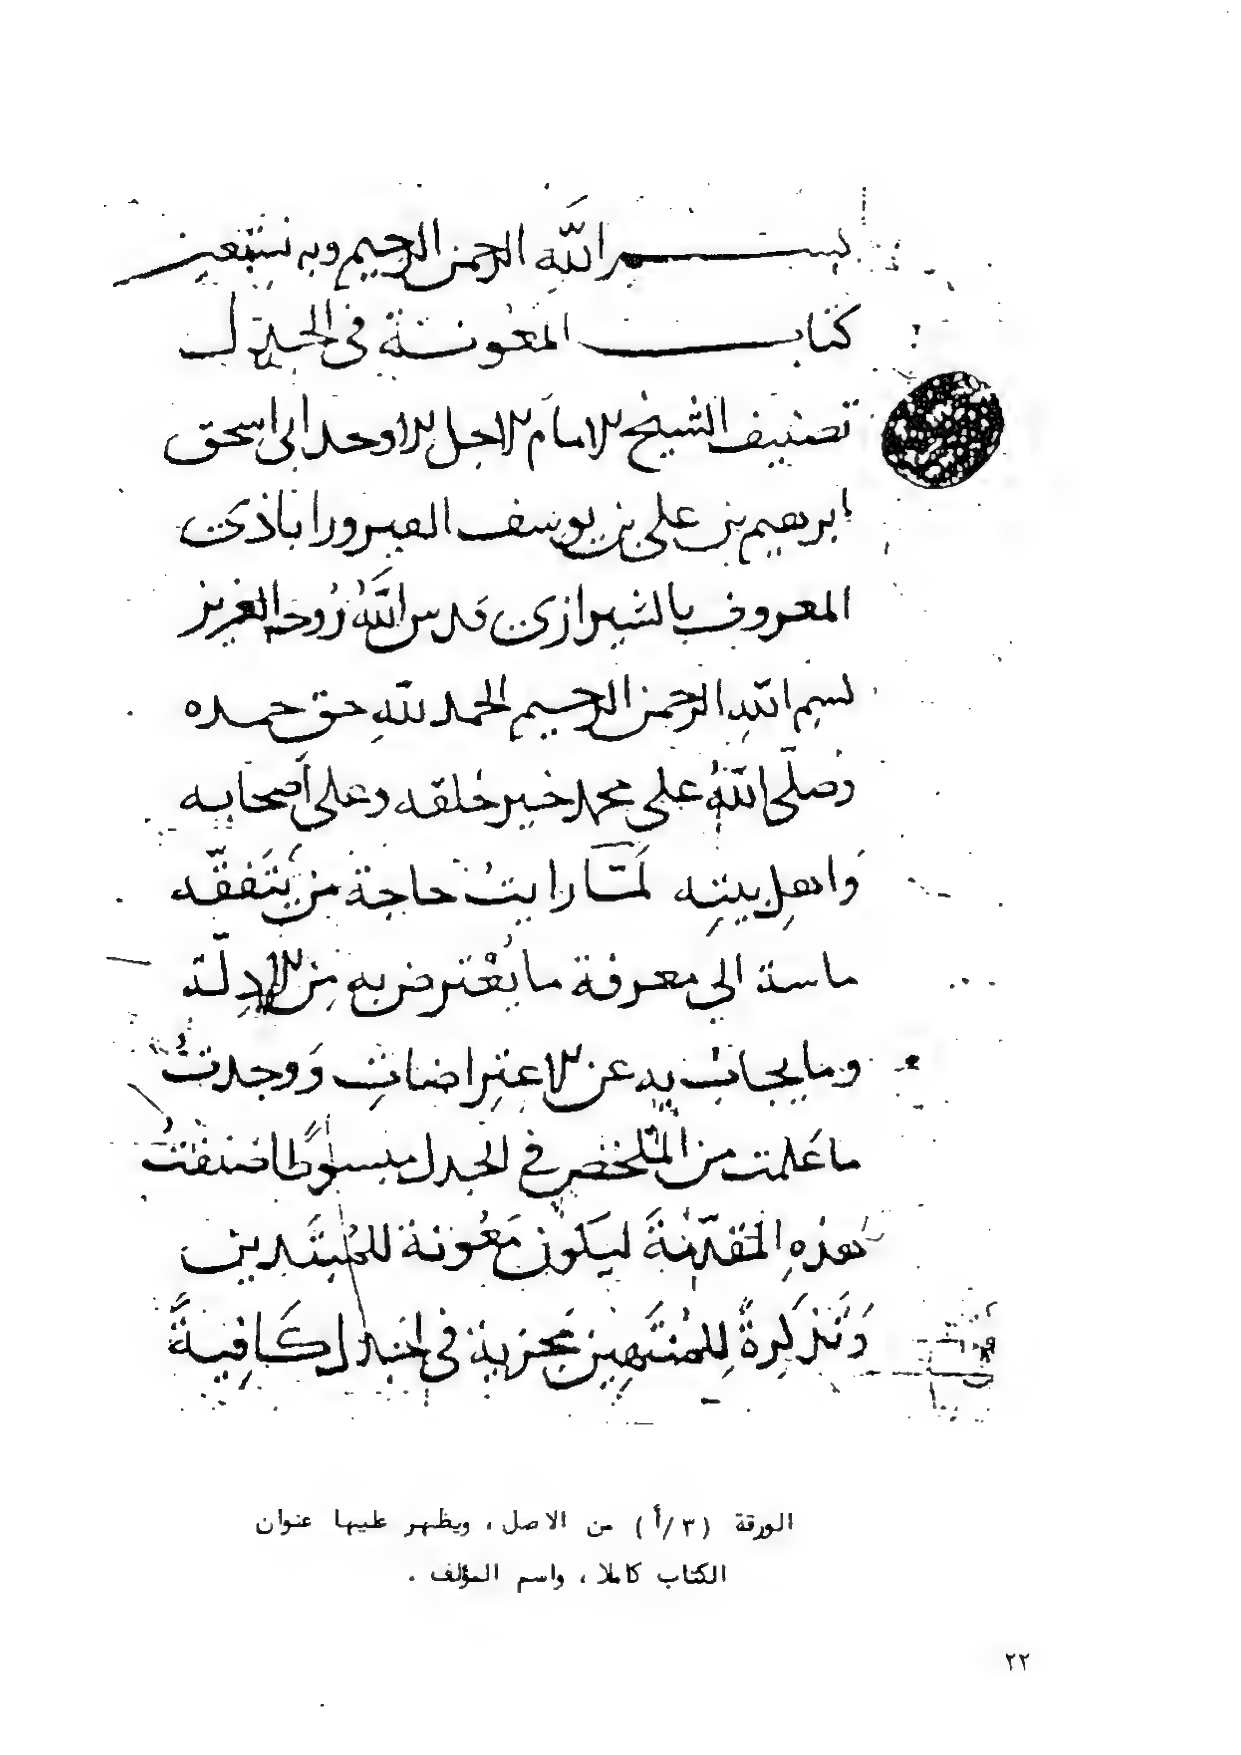 بسم الله الرحمن الرحيم وبه نستعين
كتاب المعونة فى الجدل
تصنيف الشيخ الامام الاجل الاوحد ابى اسحق
ابرهيم بن على بن يوسف الفيروراباذى
المعروف بالشيرازى قدس الله روحه العزيز
بسم الله الرحمن الرحيم الحمد لله حق حمده
وصلى الله على محمد خير خلقه وعلى أصحابه
واهل بيته لمّا رايت حاجة من يَتَفقّه
ماسة الى معرفة ما يُعْترض به مِن الادِلّة
وما يجاب به عن الاعتراضات وَوجدتُ
ما عَملت من الملخص في الجدل مبسوطًا صنفتُ
هذهِ المقدّمَةَ ليكون مَعُونة للمُبتَدين
وَتَذكرةً لِلمُنتَهين مجزية فى الجدل كَافِيةً
الورقة (٣/أ) من الاصل، ويظهر عليها عنوان
الكتاب كاملا، واسم المؤلف .
٢٢